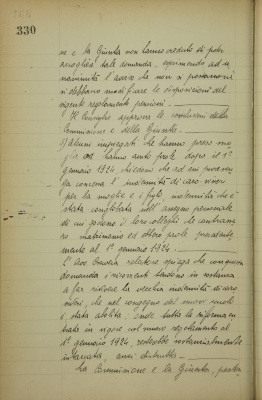 330
ne e la Giunta non hanno creduto di poter
accogliere tale domanda, esprimendo ad u
nanimità l'avviso che non si possano né
si debbano modificare le disposizioni del
vigente regolamento pensioni.
Il Consiglio approva le conclusioni della
Commissione e della Giunta.
Alcuni impiegati che hanno preso mo
glie od hanno avuto prole dopo il 1°
gennaio 1924 chiedono che ad essi pure ven
ga concessa l'indennità di caro viveri
per la moglie e i figli, indennità che è
stata conglobata nell'assegno personale
di cui godono i loro colleghi che contrasse
ro matrimonio ed ebbero prole precedente
mente al 1° gennaio 1924.
L'avv. relatore spiega che con questa
domanda i ricorrenti tendono in sostanza
a far rivivere la vecchia indennità di caro
viveri, che nel congegno dei nuovi ruoli
è stata abolita; onde tutta la riforma en
trata in vigore col nuovo regolamento al
1° gennaio 1924 verrebbe sostanzialmente
intaccata, anzi distrutta.
La Commissione e la Giunta, pertan